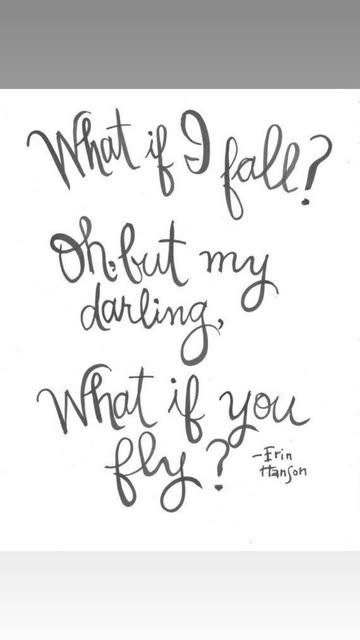 What if I fall?
Oh, but my
darling,
What if you
fly?
-Erin
Hanson